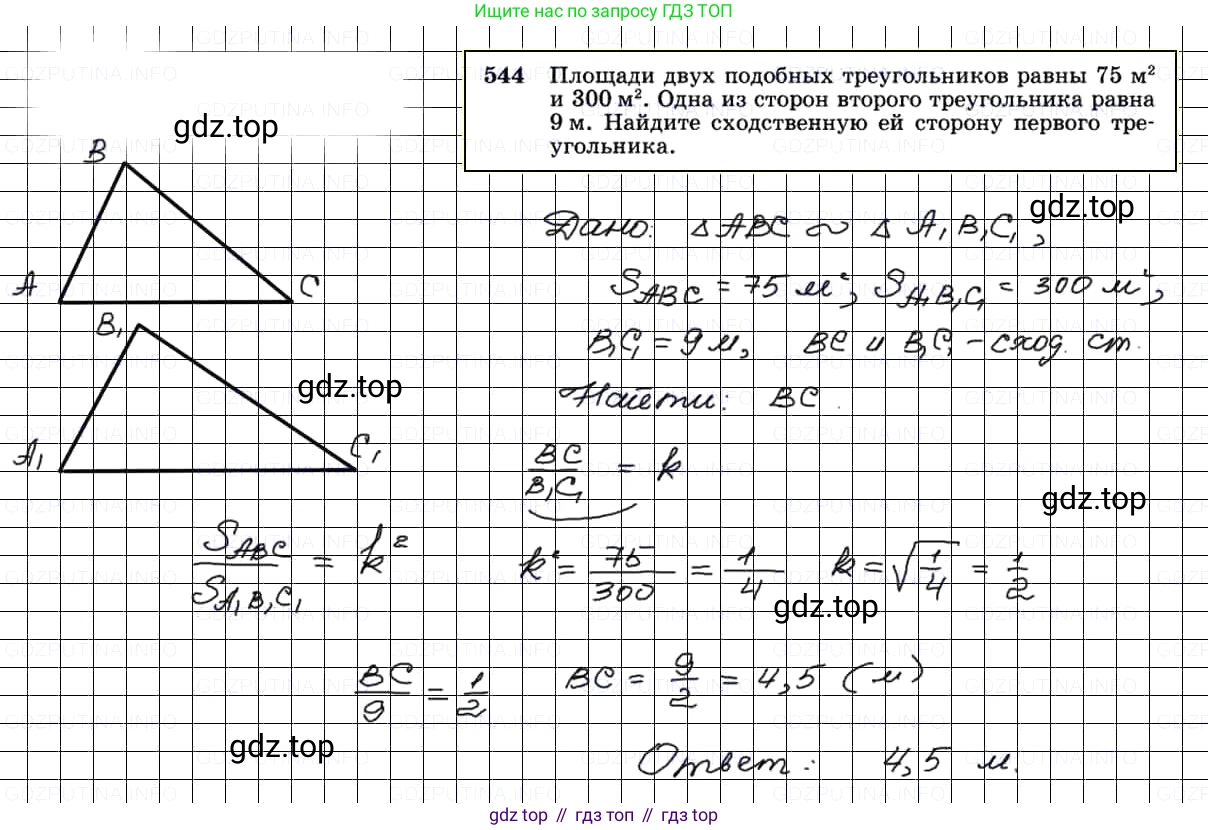 Ищите нас по запросу ГДЗ ТОП
544 Площади двух подобных треугольников равны 75 м²
и 300 м². Одна из сторон второго треугольника равна
9 м. Найдите сходственную ей сторону первого тре-
угольника.
gdz.top
B
A
C
Дано: △ ABC ∾ △ A₁B₁C₁,
gdz.top
S_ABC = 75 м², S_A₁B₁C₁ = 300 м²,
B₁C₁ = 9 м, BC и B₁C₁ - сход. ст.
B₁
A₁
C₁
gdz.top
Найти: BC.
BC/B₁C₁ = k
gdz.top
S_ABC/S_A₁B₁C₁ = k² k² = 75/300 = 1/4 k = √(1/4) = 1/2
gdz.top
BC/9 = 1/2 BC = 9/2 = 4,5 (м)
gdz.top
Ответ: 4,5 м.
gdz top // гдз топ // gdz top
GDZPUTINA.INFO